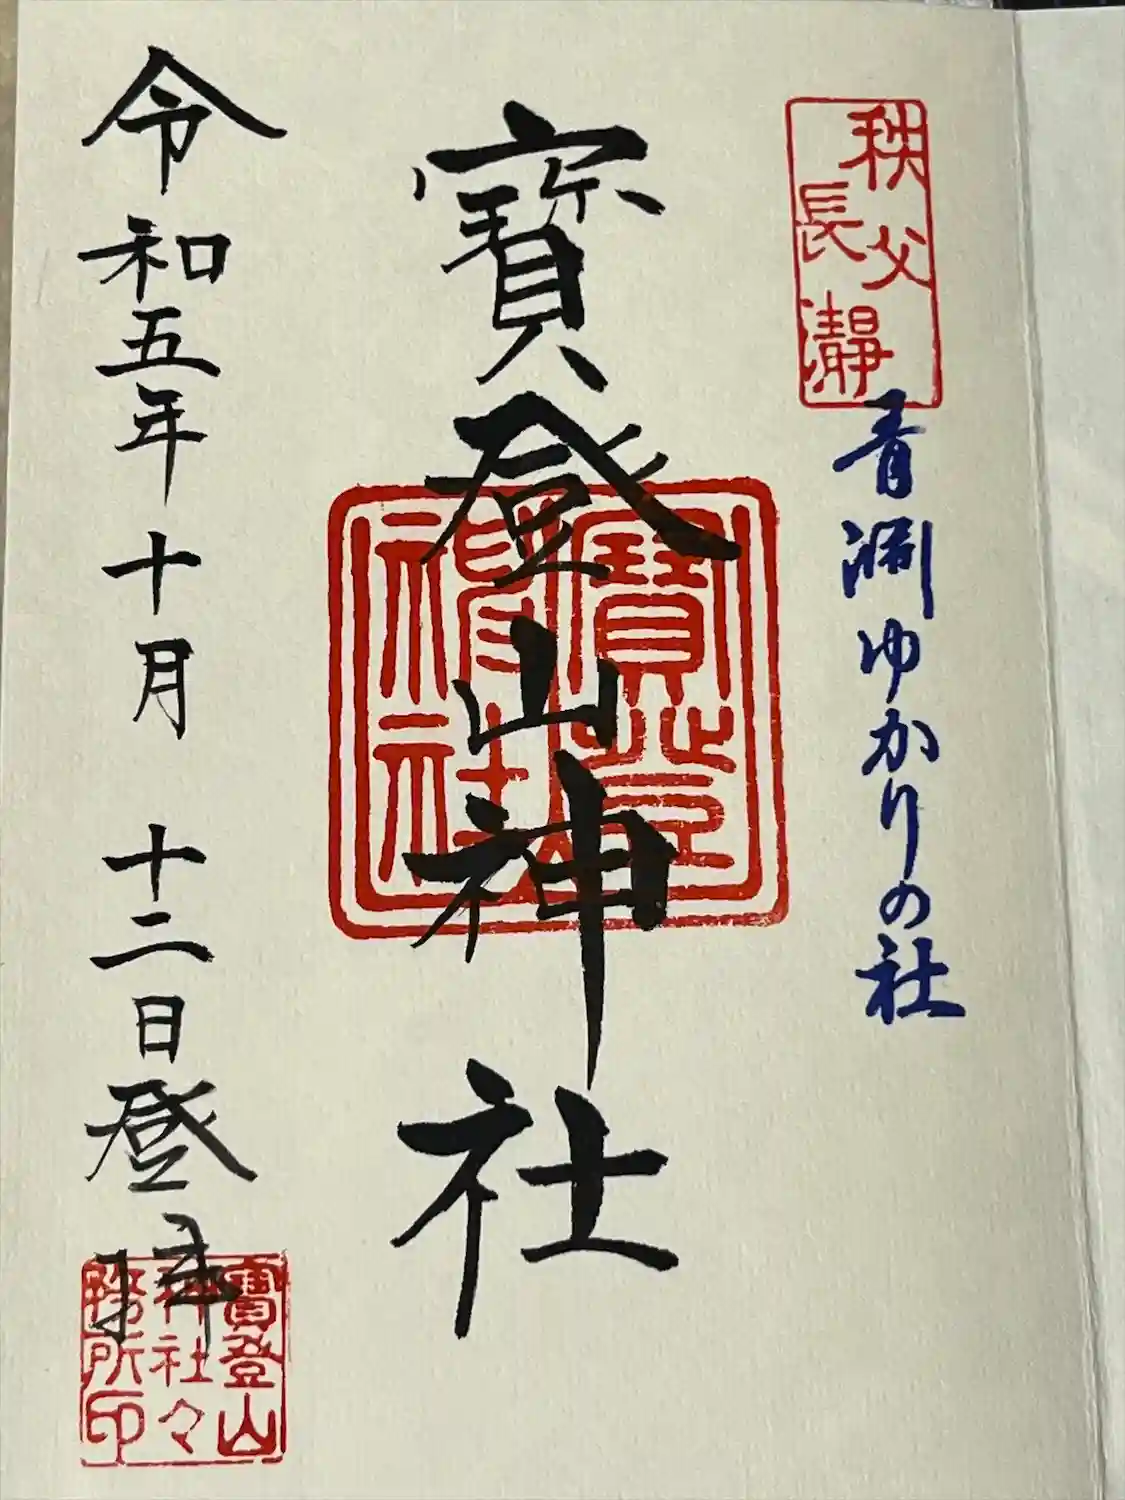 秩父
長瀞
青淵ゆかりの社
寶登山神社
寶登山
神社
令和五年十月 十二日登拝
寶登山
神社々
務所印